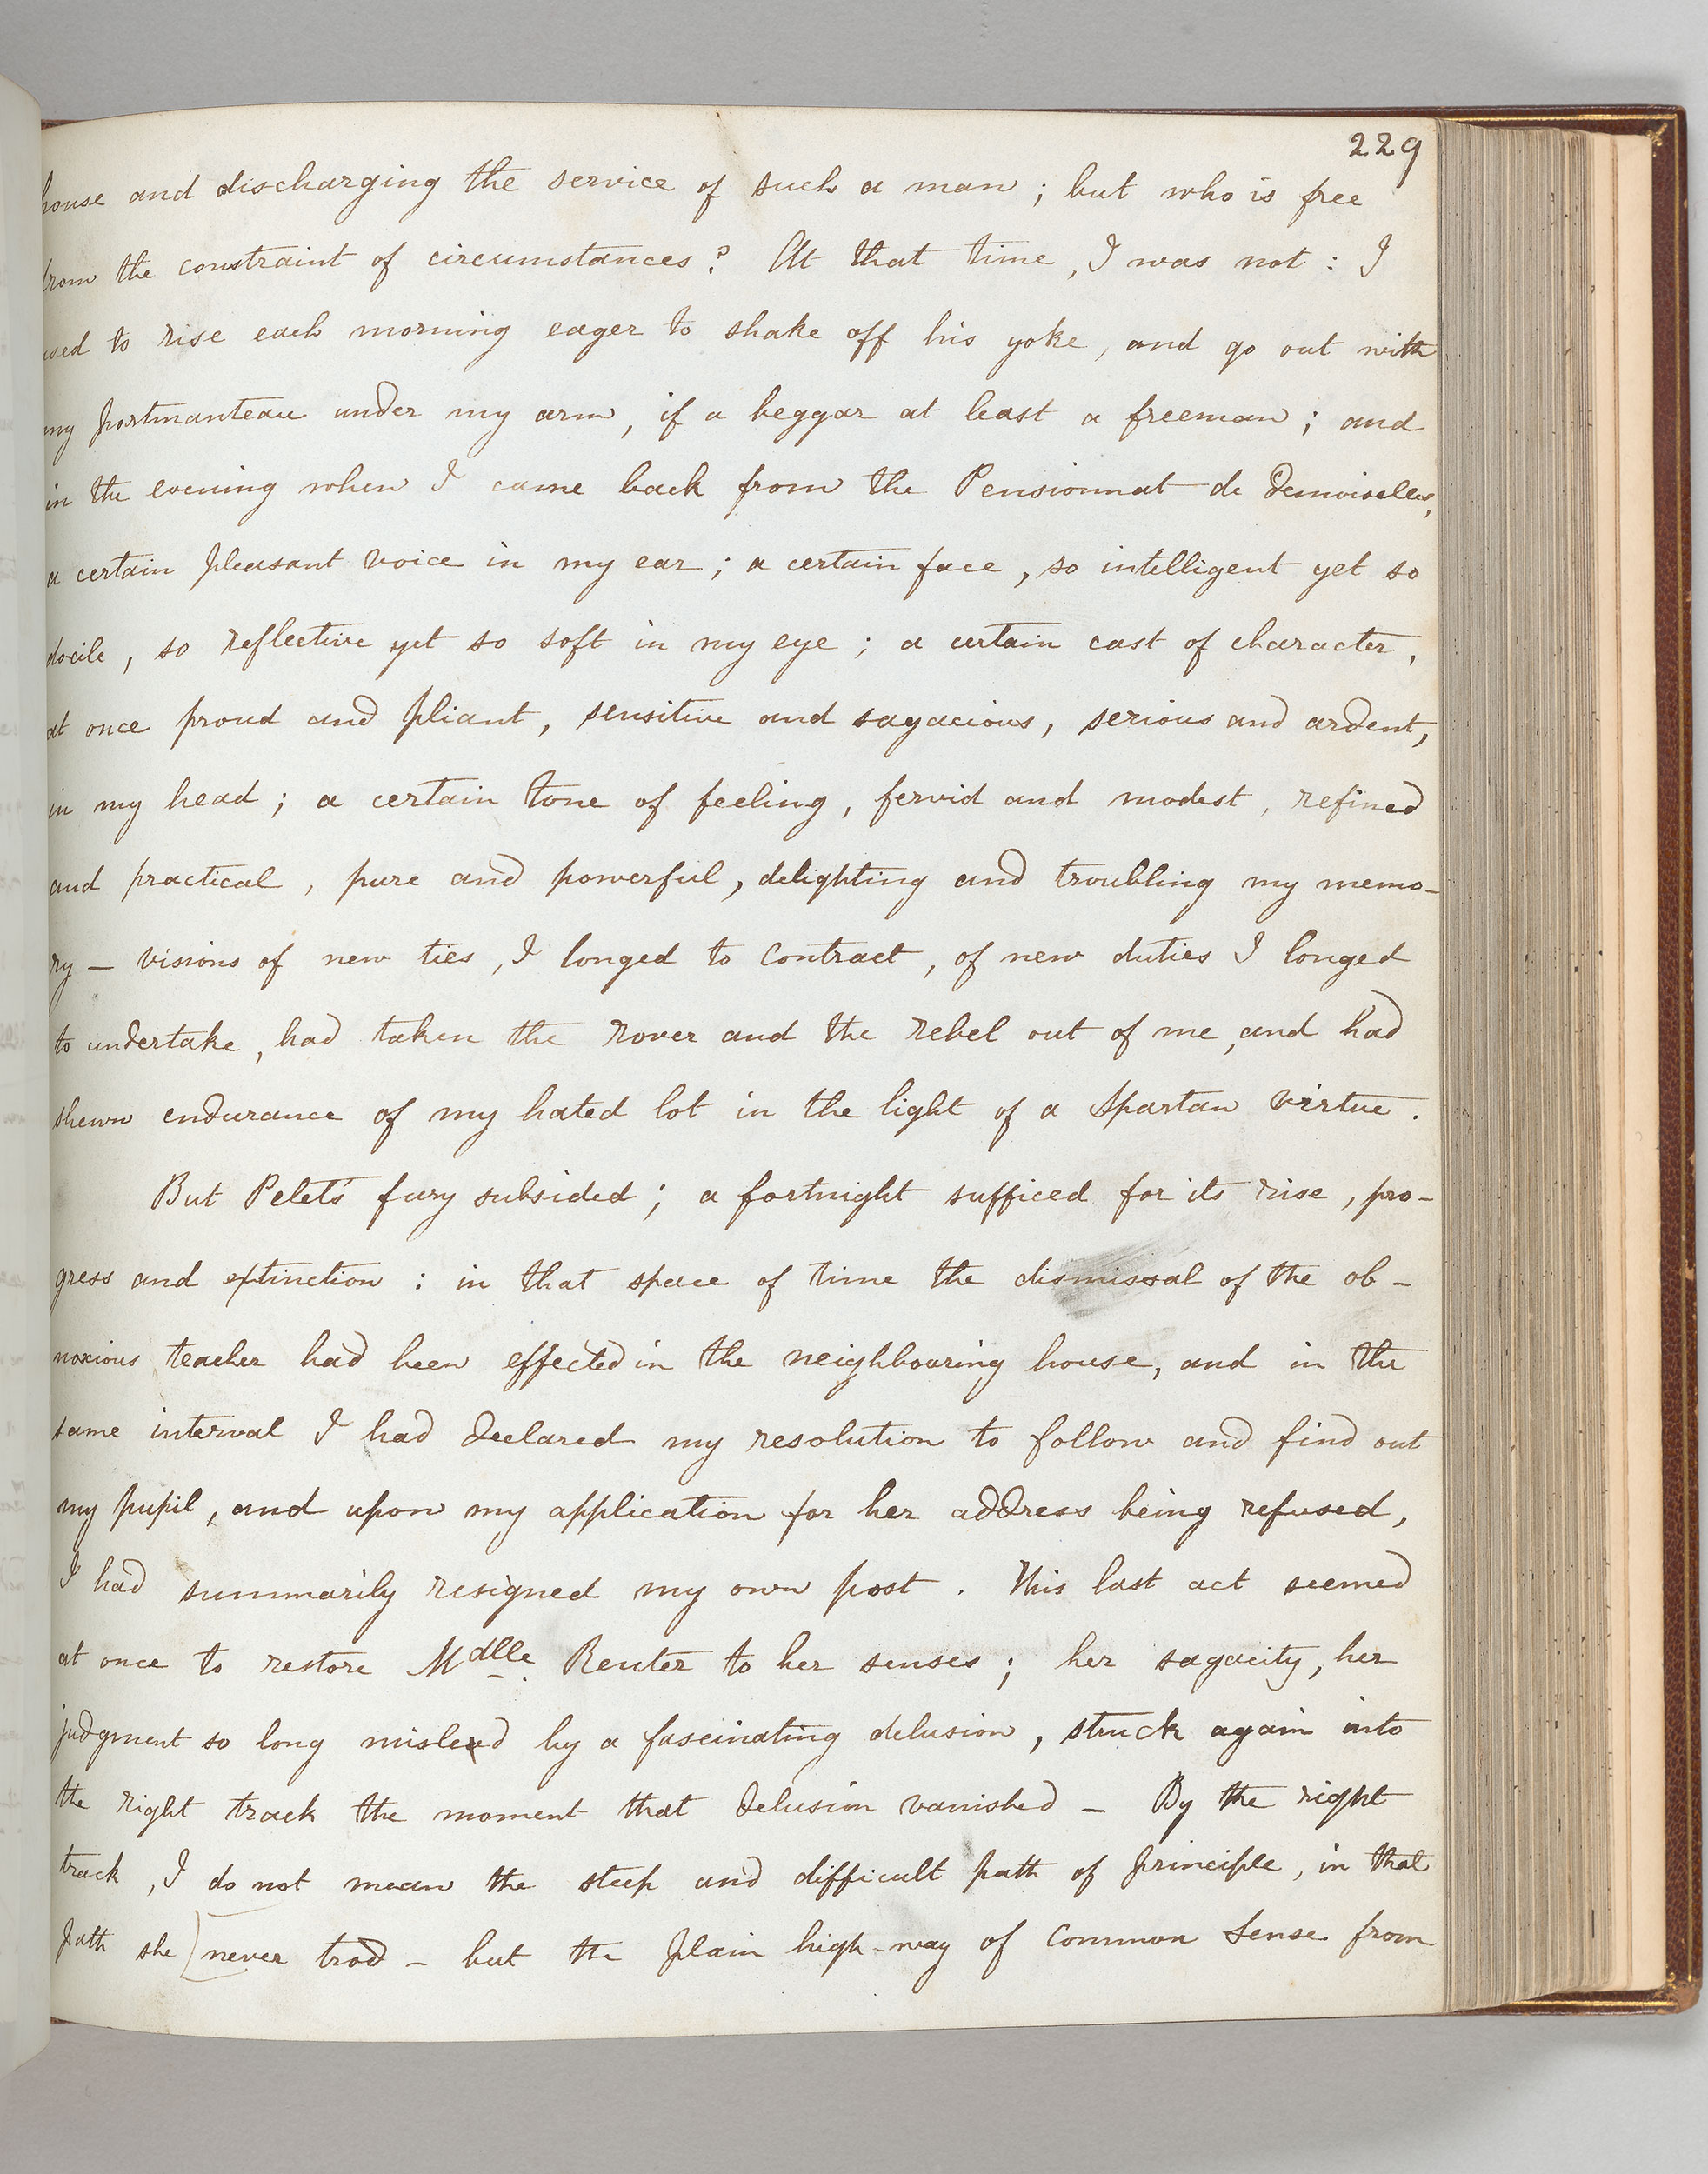 229
house and discharging the service of such a man ; but who is free
from the constraint of circumstances ? At that time , I was not : I
used to rise each morning eager to shake off his yoke , and go out with
my portmanteau under my arm , if a beggar at least a freeman ; and
in the evening when I came back from the Pensionnat de Demoiselles,
a certain pleasant voice in my ear ; a certain face , so intelligent yet so
docile , so reflective yet so soft in my eye ; a certain cast of character ,
at once proud and pliant , sensitive and sagacious , serious and ardent ,
in my head ; a certain tone of feeling , fervid and modest , refined
and practical , pure and powerful , delighting and troubling my memo-
ry — visions of new ties , I longed to contract , of new duties I longed
to undertake , had taken the rover and the rebel out of me , and had
shewn endurance of my hated lot in the light of a Spartan virtue .
But Pelet's fury subsided ; a fortnight sufficed for its rise , pro-
gress and extinction : in that space of time the dismissal of the ob-
noxious teacher had been effected in the neighbouring house , and in the
same interval I had declared my resolution to follow and find out
my pupil , and upon my application for her address being refused ,
I had summarily resigned my own post . This last act seemed
at once to restore Mdlle. Reuter to her senses ; her sagacity , her
judgment so long misled by a fascinating delusion , struck again into
the right track the moment that delusion vanished — By the right
track , I do not mean the steep and difficult path of principle , in that
path she never trod — but the plain high-way of common sense from